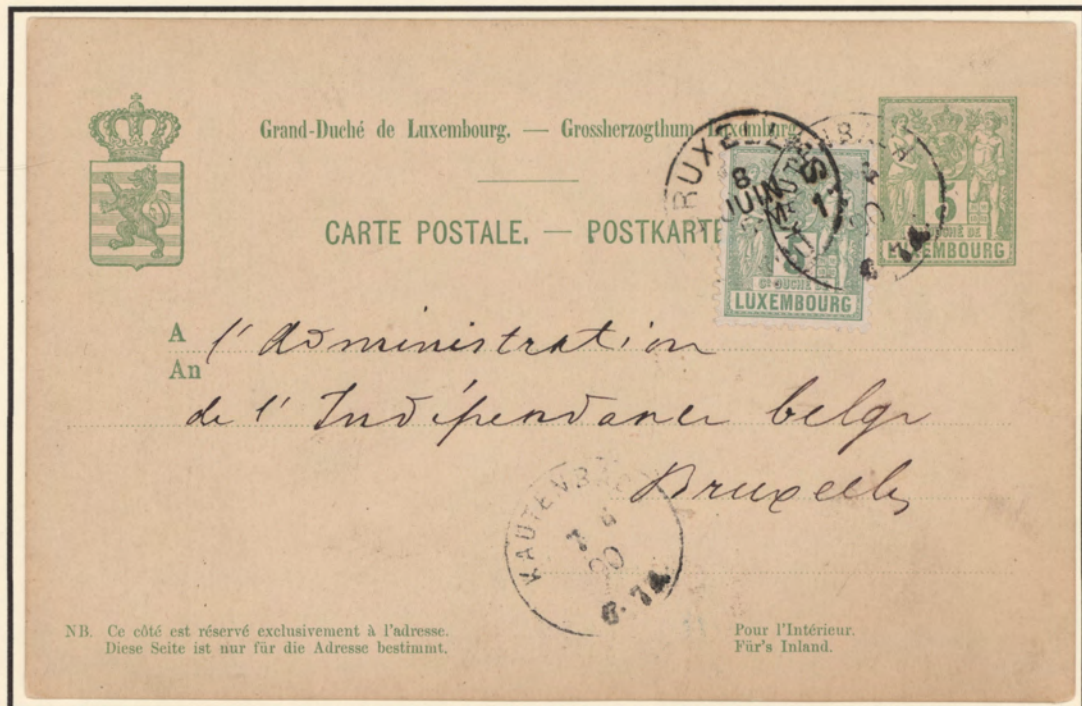 Grand-Duché de Luxembourg. — Grossherzogthum Luxemburg.
CARTE POSTALE. — POSTKARTE
BRUXELLES
8
JUIN
1
5
5
LUXEMBOURG
GD DUCHÉ DE
LUXEMBOURG
A l'Administration
An
de l'Indépendance belge
Bruxelles
KAUTENBACH
7 6
90
6-7A.
NB. Ce côté est réservé exclusivement à l'adresse.
Diese Seite ist nur für die Adresse bestimmt.
Pour l'Intérieur.
Für's Inland.